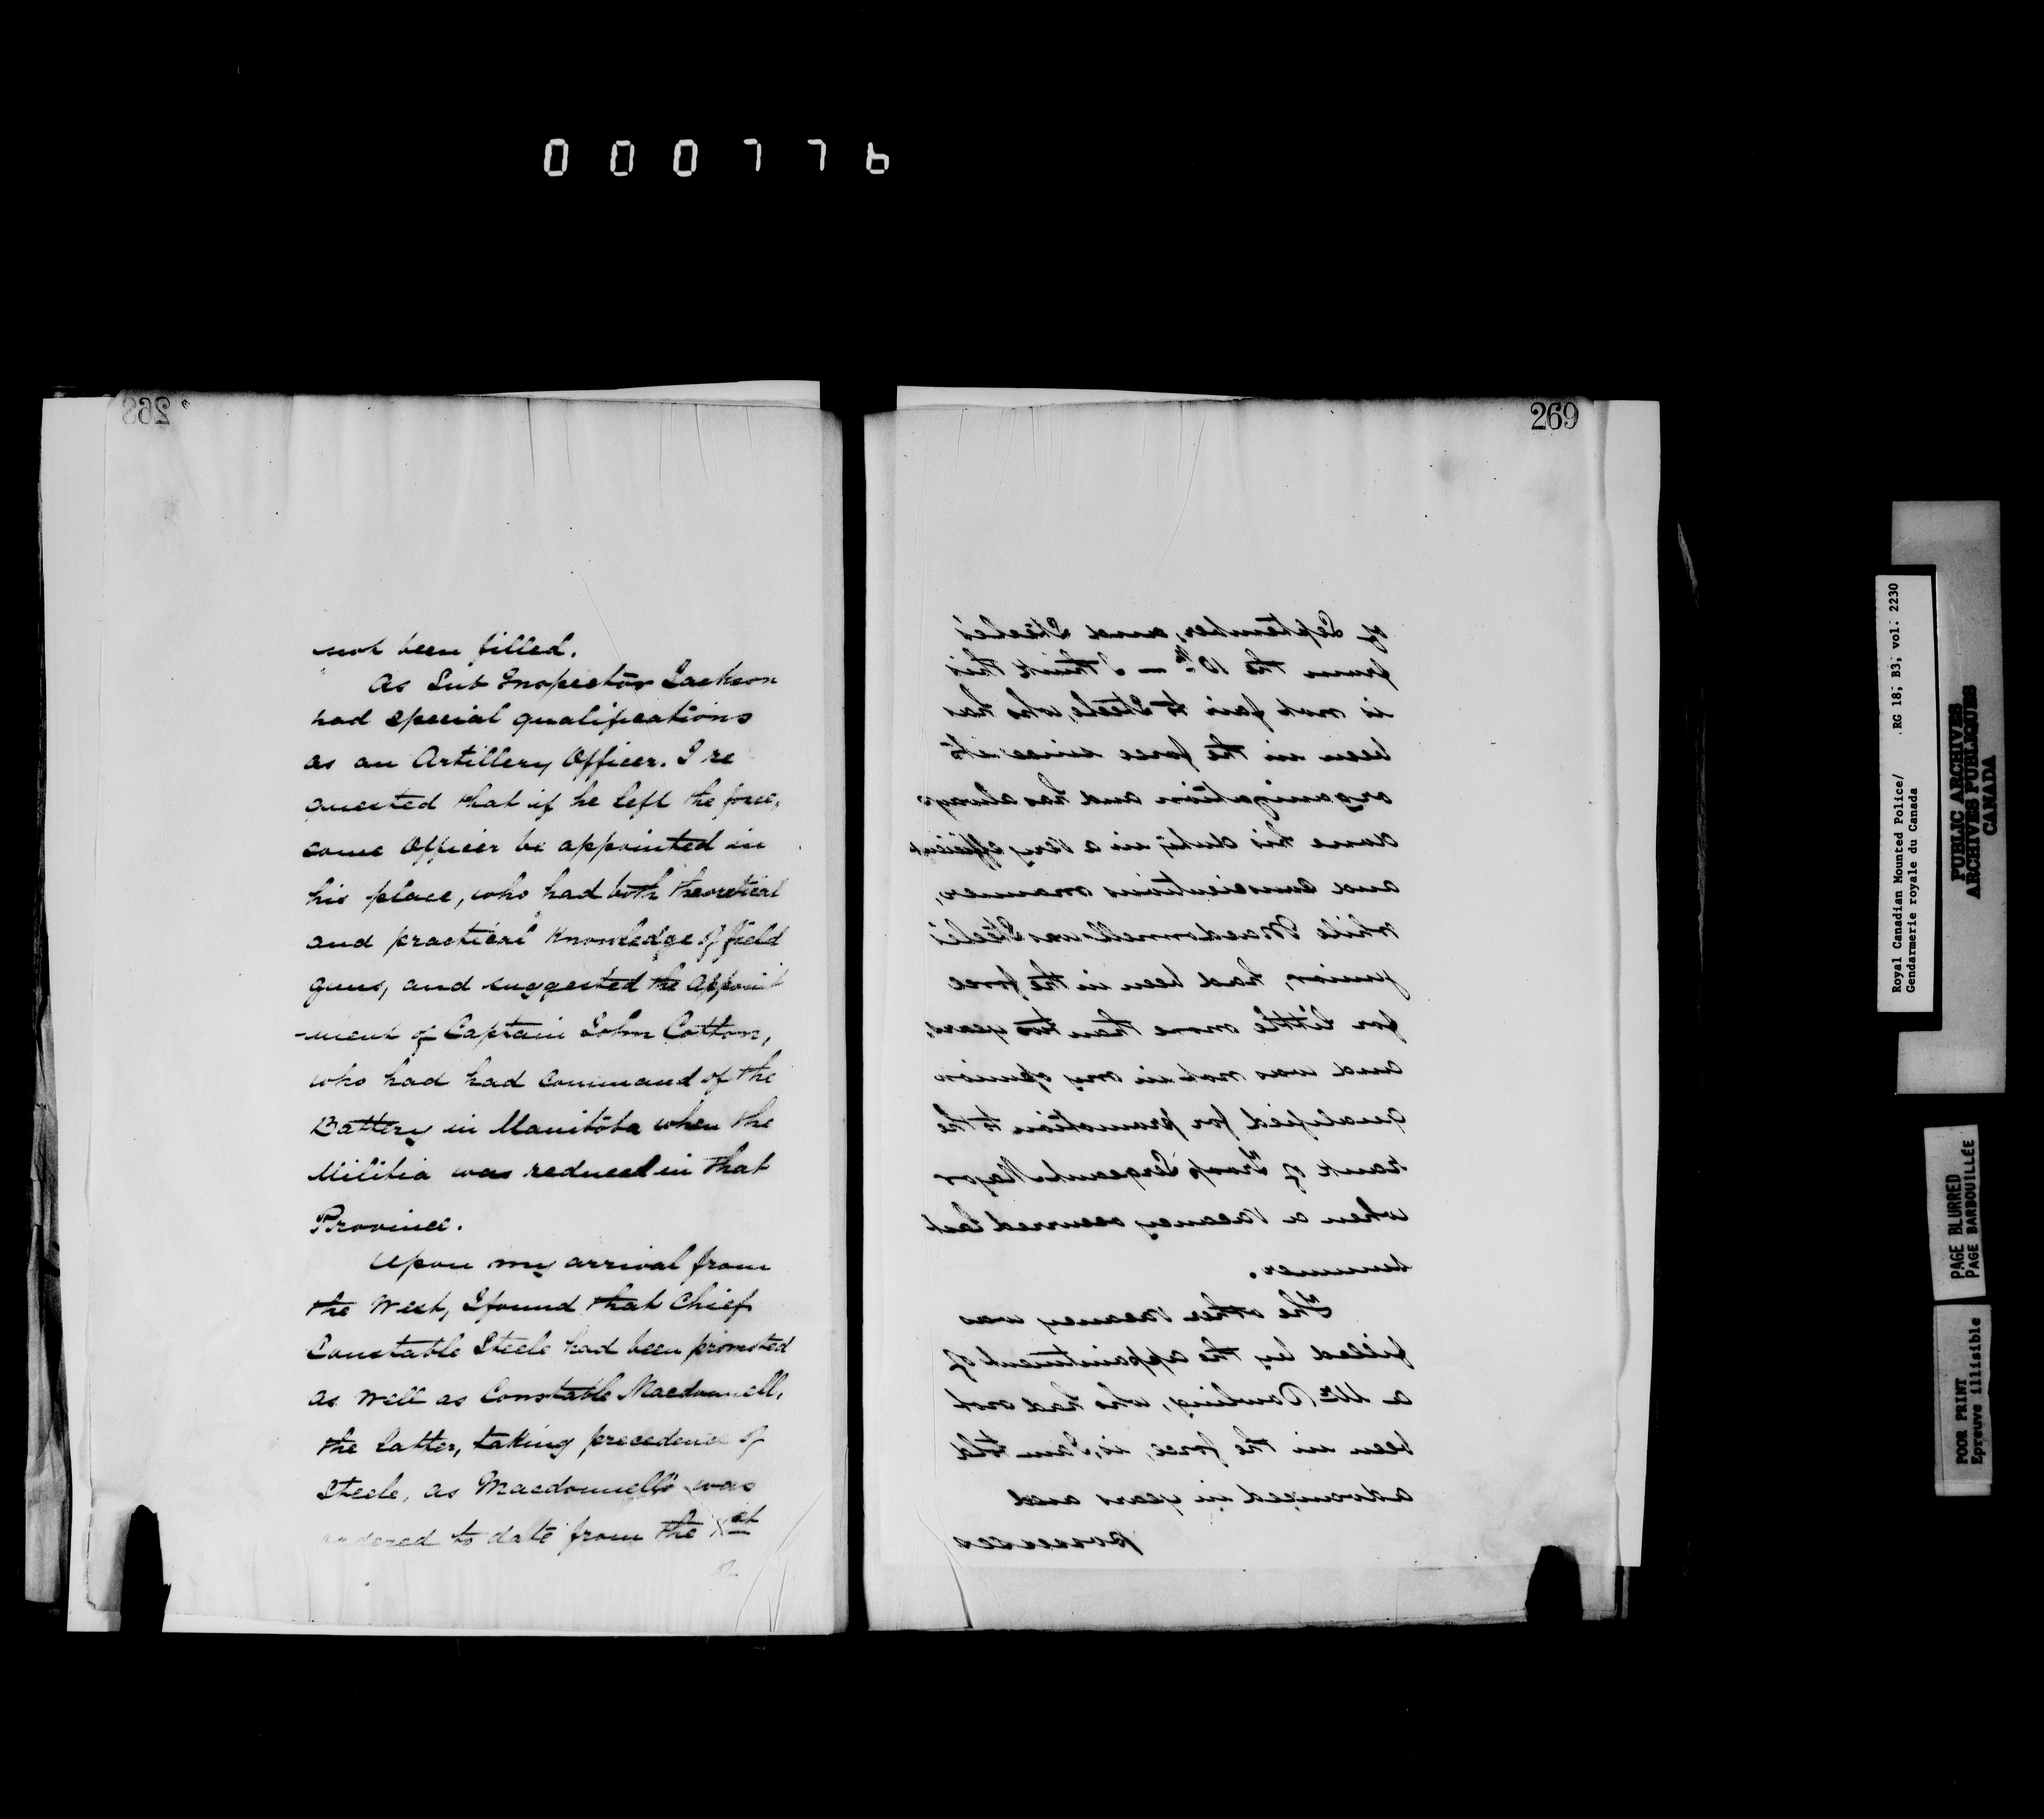 000776
268
not been filled.
As Sub Inspector Jackson
had special qualifications
as an Artillery Officer. I re
quested that if he left the force,
some Officer be appointed in
his place, who had both theoretical
and practical knowledge of field
guns, and suggested the appoint
-ment of Captain John Cotton,
who had had command of the
Battery in Manitoba when the
Militia was reduced in that
Province.
Upon my arrival from
the West, I found that Chief
Constable Steele had been promoted
as well as Constable Macdonnell,
the latter, taking precedence of
Steele, as Macdonnell's was
ordered to date from the 1st
269
of September, and Steele's
from the 10th — I think this
is not fair to Steele, who has
been in the force since its
organization and has always
done his duty in a very efficient
and conscientious manner,
while Macdonnell was Steele's
junior, had been in the force
for little more than two years,
and was not in my opinion
qualified for promotion to the
rank of Troop Sergeant Major
when a vacancy occurred last
summer.
The other vacancy was
filled by the appointment of
a Mr Dowling, who had not
been in the force, is, I am told
advanced in years and
possesses
Royal Canadian Mounted Police/ RG 18; B3; vol: 2230
Gendarmerie royale du Canada
PUBLIC ARCHIVES
ARCHIVES PUBLIQUES
CANADA
PAGE BLURRED
PAGE BARBOUILLÉE
POOR PRINT
Epreuve illisible